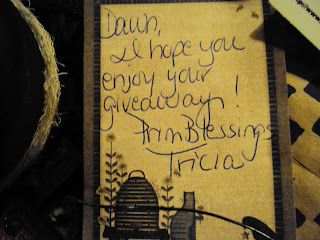 Dawn,
I hope you
enjoy your
giveaway!
PrimBlessings
Tricia